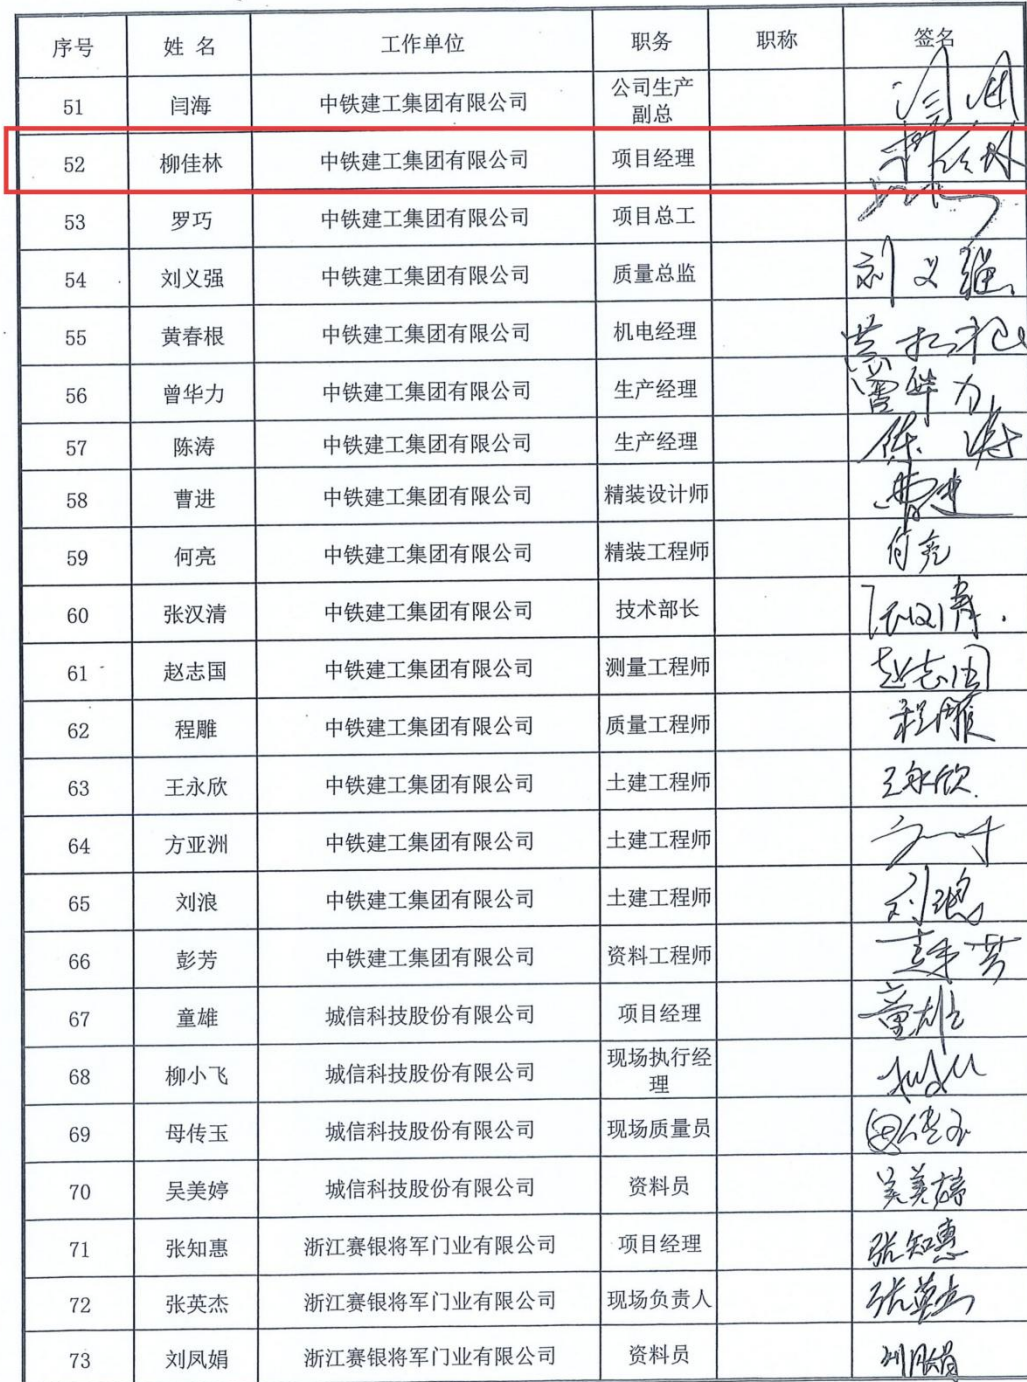 序号 姓名 工作单位 职务 职称 签名
51 闫海 中铁建工集团有限公司 公司生产副总 闫海
52 柳佳林 中铁建工集团有限公司 项目经理 柳佳林
53 罗巧 中铁建工集团有限公司 项目总工
54 刘义强 中铁建工集团有限公司 质量总监 刘义强
55 黄春根 中铁建工集团有限公司 机电经理 黄春根
56 曾华力 中铁建工集团有限公司 生产经理 曾华力
57 陈涛 中铁建工集团有限公司 生产经理 陈涛
58 曹进 中铁建工集团有限公司 精装设计师 曹进
59 何亮 中铁建工集团有限公司 精装工程师 何亮
60 张汉清 中铁建工集团有限公司 技术部长 张汉清
61 赵志国 中铁建工集团有限公司 测量工程师 赵志国
62 程雕 中铁建工集团有限公司 质量工程师 程雕
63 王永欣 中铁建工集团有限公司 土建工程师 王永欣
64 方亚洲 中铁建工集团有限公司 土建工程师
65 刘浪 中铁建工集团有限公司 土建工程师 刘浪
66 彭芳 中铁建工集团有限公司 资料工程师 彭芳
67 童雄 城信科技股份有限公司 项目经理 童雄
68 柳小飞 城信科技股份有限公司 现场执行经理
69 母传玉 城信科技股份有限公司 现场质量员 母传玉
70 吴美婷 城信科技股份有限公司 资料员 吴美婷
71 张知惠 浙江赛银将军门业有限公司 项目经理 张知惠
72 张英杰 浙江赛银将军门业有限公司 现场负责人 张英杰
73 刘凤娟 浙江赛银将军门业有限公司 资料员 刘凤娟